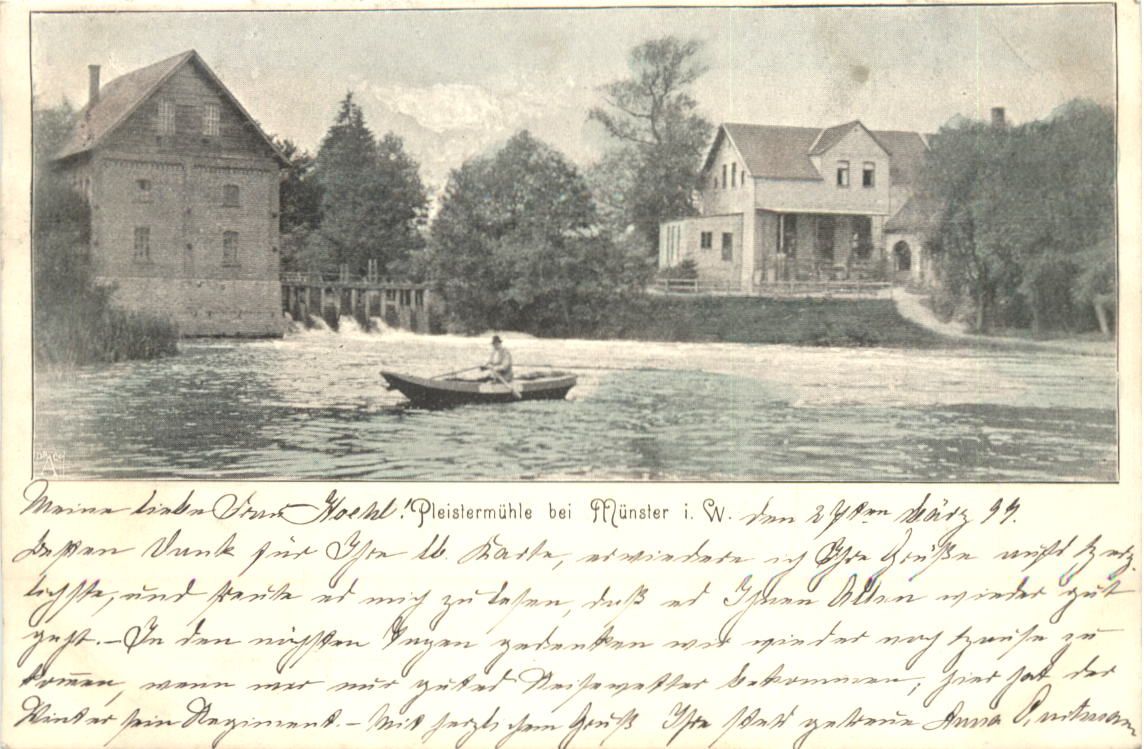 Meine liebe Frau Koehl! Pleistermühle bei Münster i. W. den 27ten März 99.
Besten Dank für Ihre lb. Karte, erwiedere ich Ihre Grüße aufs herz-
lichste, und freute es mich zu lesen, daß es Ihnen Allen wieder gut
geht. – In den nächsten Tagen gedenken wir wieder nach Hause zu
kom̄en, wenn wir nur gutes Reisewetter bekommen; hier hat der
Winter sein Regiment. – Mit herzlichem Gruß Ihre stets getreue Anna